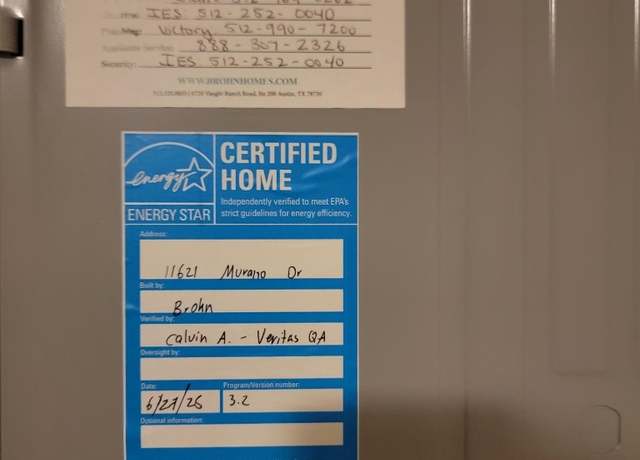 IES: 512-252-0040
Victory 512-990-7200
888-307-2326
Security: IES 512-252-0040
WWW.BROHNHOMES.COM
energy
ENERGY STAR
CERTIFIED
HOME
Independently verified to meet EPA's
strict guidelines for energy efficiency.
Address:
11621 Murano Dr
Built by:
Brohn
Verified by:
Calvin A. - Veritas QA
Oversight by:
Date: Program/Version number:
6/27/25 3.2
Optional information: